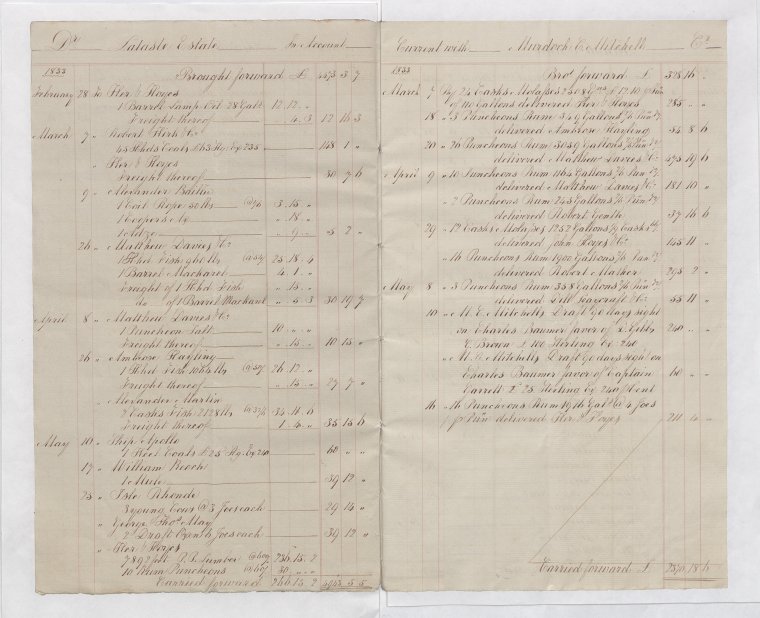 Dr Lataste Estate In Account
1833 Brought forward £ 4575 3 7
February 28 To Ker & Hoyes
1 Barrel Lamp Oil 28 Galls 12.12.„
Freight thereof „.4.3 12 16 3
March 7 „ Robert Kirk & Co
„ Ker & Hoyes
Freight thereof 30 7 6
9 „ Alexander Baillie
1 Coil Rope 50 lbs 3.15.„
1 Coopers
1 Adze „.9.„ 5 2 „
26 „ Matthew Davies & Co
1 Hhd Fish 960 lbs 25.18.4
1 Barrel Mackarel 4.1.„
Freight of 1 Hhd Fish „.15.„
do of 1 Barrel Mackarel „.4.3 30 19 7
April 8 „ Matthew Davies & Co
1 Puncheon Salt 10.„.„
Freight thereof „.15.„ 10 15 „
26 „ Ambrose Hayling
1 Hhd Fish 26.12.„
Freight thereof „.15.„ 27 7 „
„ Alexander Martin
2 Casks Fish 2128 lbs 34.11.6
Freight thereof 1.4.„ 35 15 6
May 10 „ Ship Apollo
60 „ „
17 „ William Keoch
1 Mule 39 12 „
25 „ Isle Rhonde
3 young Cows @ 3 Joes each 29 14 „
„ George & Thos May
2 Draft Oxen 6 Joes each 39 12 „
„ Ker & Hoyes
7892 feet P. P. Lumber 236.15.2
10 Rum Puncheons 30.„.„
Carried forward 266.15.2 4963 5 5
Current with Murdoch E. Mitchell Cr
1833 Brot forward £ 528 16 „
March 7 By 24 Casks Molasses
of 110 Gallons delivered Ker & Hoyes 285 „ „
18 „ 3 Puncheons Rum 349 Gallons
delivered Ambrose Hayling 54 8 6
20 „ 26 Puncheons Rum 3049 Gallons
delivered Matthew Davies & Co 475 19 6
April 9 „ 10 Puncheons Rum 1164 Gallons
delivered Matthew Davies & Co 181 10 „
„ 2 Puncheons Rum 243 Gallons
delivered Robert Gentle 37 16 6
29 „ 12 Casks Molasses 1252 Gallons
delivered John Hoyes & Co 145 11 „
„ 16 Puncheons Rum 1900 Gallons
delivered Robert Mather 295 2 „
May 8 „ 3 Puncheons Rum 358 Gallons
delivered & Co 55 11 „
10 „ M. E. Mitchells Draft 90 days sight
on Charles Baumer favor of
G. Brown £100 Sterling Ex 240 240 „ „
„ M. E. Mitchells Draft 90 days sight on
Charles Baumer favor of Captain
Garrett £25 Sterling Ex 240 p Cent 60 „ „
16 „ 16 Puncheons Rum 1916 Galls @ 4 Joes
p Pun delivered Ker & Hoyes 211 4 „
Carried forward £